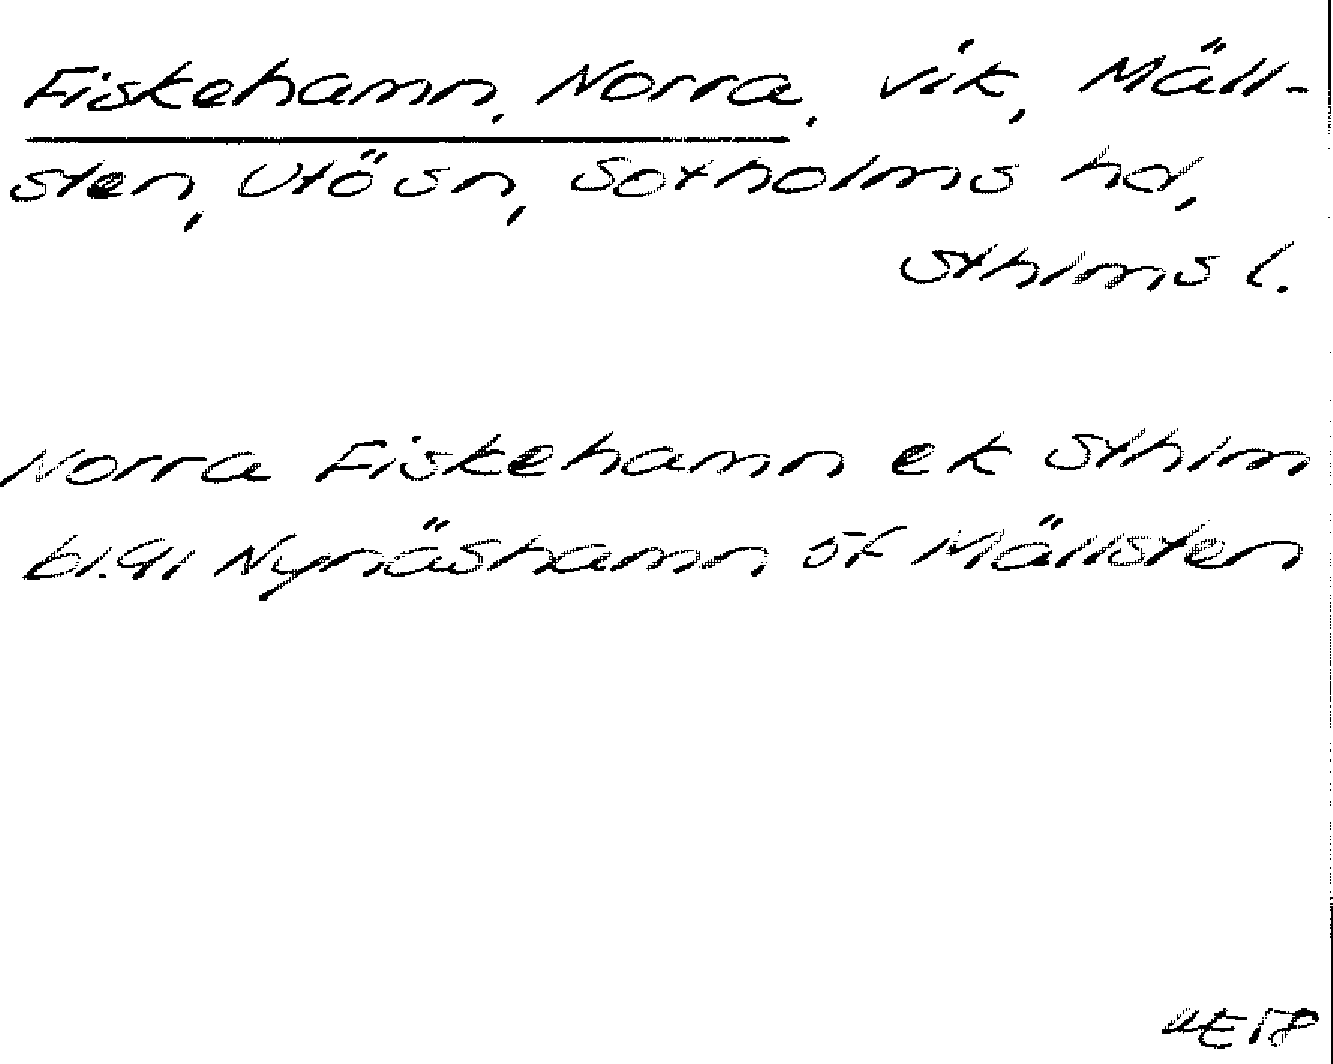 Fiskehamn, Norra, vik, Mäll-
sten, Utö sn, Sotholms hd,
Sthlms l.
Norra Fiskehamn ek Sthlm
bl. 91 Nynäshamn, öf Mällsten